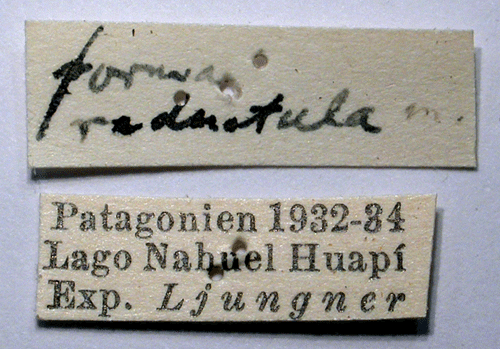 forma
reductula m.
Patagonien 1932-34
Lago Nahuel Huapí
Exp. Ljungner